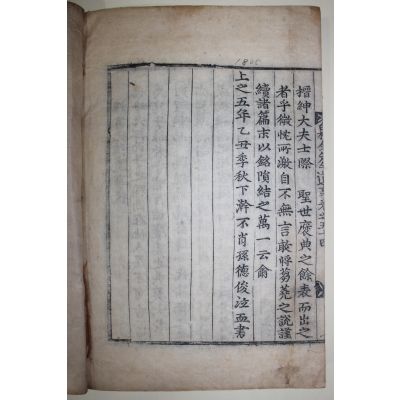 1805
搢紳大夫士際 聖世褒典之餘表而出之
者乎微忱所激自不無言敢將蒭蕘之說謹
續諸篇末以銘隕結之萬一云爾
上之五年乙丑季秋下澣不肖孫德俊泣血書